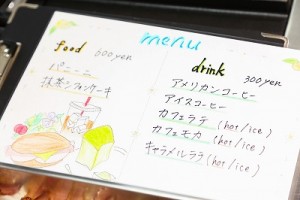 menu
food 600yen
パニーニ
抹茶シフォンケーキ
drink 300yen
アメリカンコーヒー
アイスコーヒー
カフェラテ (hot/ice)
カフェモカ (hot/ice)
キャラメルラテ (hot/ice)